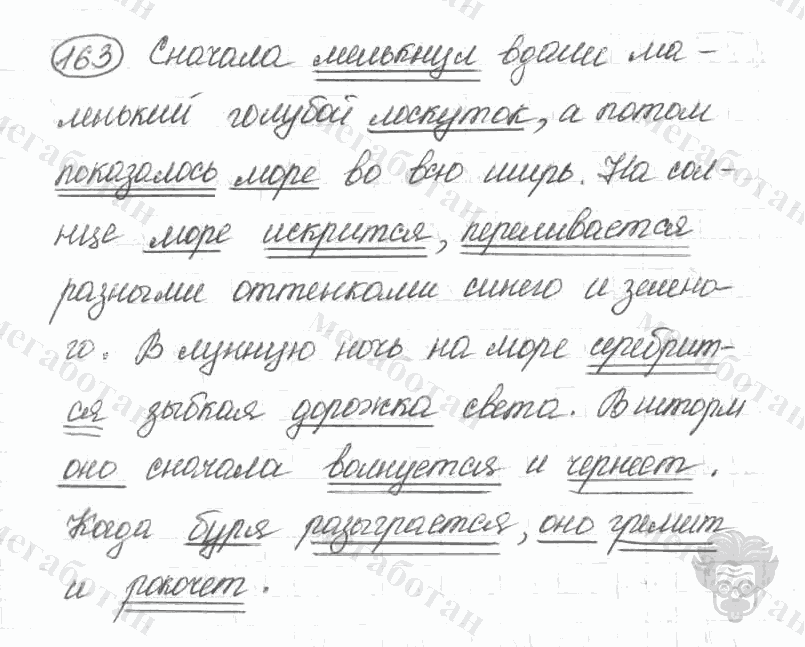 163 Сначала мелькнул вдали ма-
ленький голубой лоскуток, а потом
показалось море во всю ширь. На сол-
нце море искрится, переливается
разными оттенками синего и зелено-
го. В лунную ночь на море серебрит-
ся зыбкая дорожка света. В шторм
оно сначала волнуется и чернеет.
Когда буря разыграется, оно гремит
и рокочет.
мегаботан